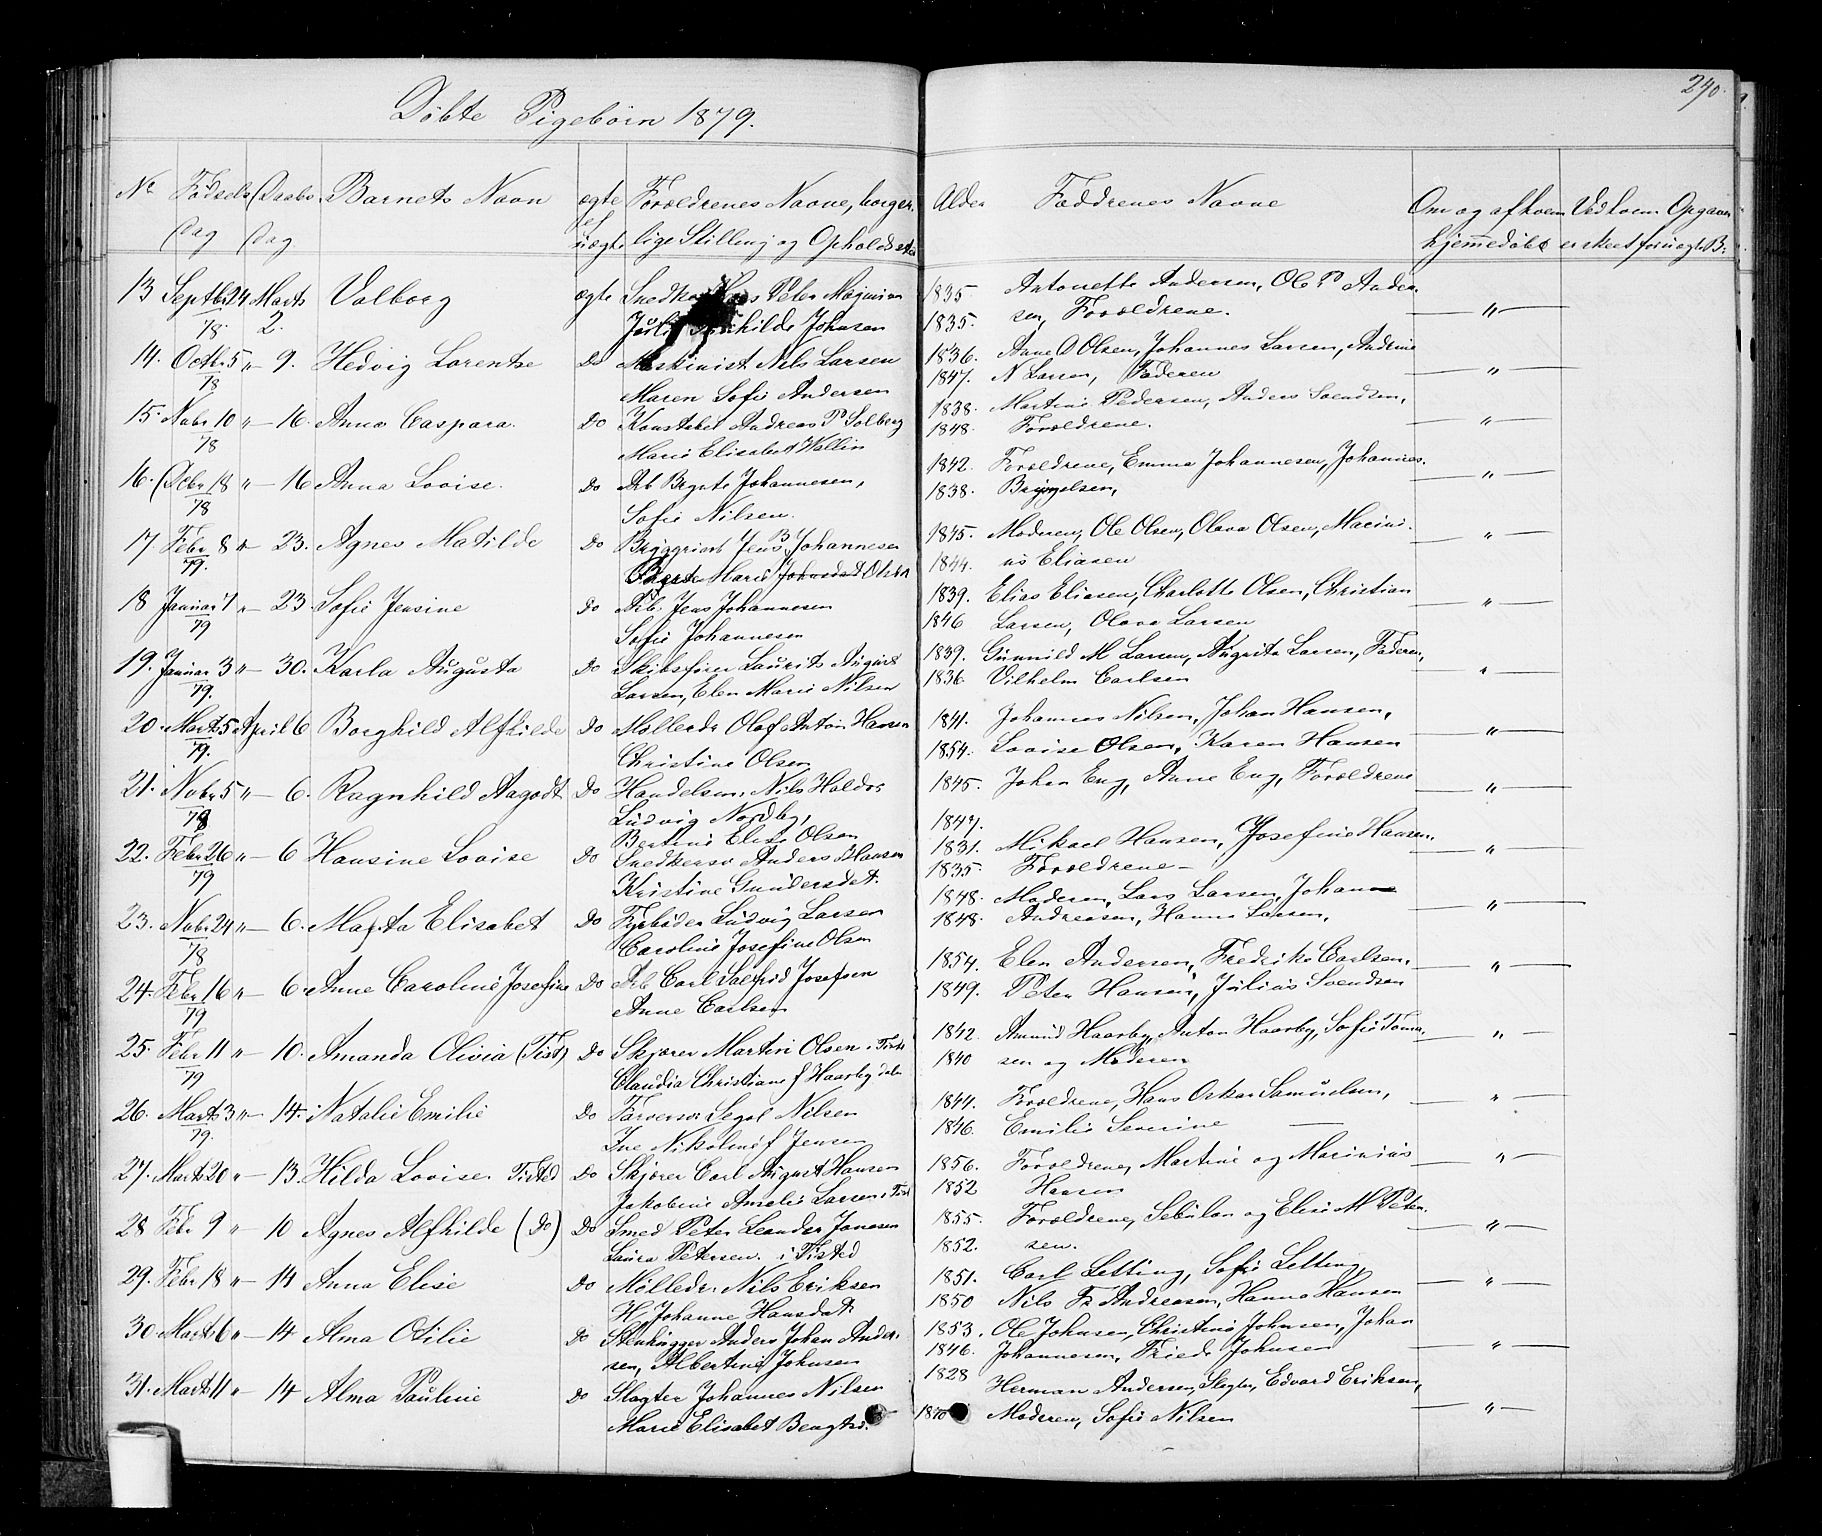 290.
Døbte Pigebørn 1879.
No Fødsels Daabs Barnets Navn ægte Forældrenes Navne, borger Alder Faddrenes Navne Om og af hvem Ved hvem Opgaven
Dag Dag el uægte lige Stilling og Opholdssted hjemmedøbt er skeet for uægte B:
13 Septbr 24 Marts Valborg ægte Snedker Peter Magnus 1835. Antonette Andersen, Ole P Ander- — " —
78. 2. hilde Johnsen 1835. sen, Forældrene.
14. Octbr 5 " — 9. Hedvig Lorentse Do Maskinist Nils Larsen 1836. Anne O Olsen, Johannes Larsen, Andrine — " —
78 Maren Sofie Andersen 1847. N Larsen, Faderen
15. Novbr 10 " — 16. Anna Caspara. Do Konstabel Andreas P Solberg 1838. Martine Pedersen, Anders Svendsen, — " —
78 Marie Elisabet Wallin 1848. Forældrene.
16. Decbr 18 " — 16 Anna Lovise. Do Arb Brynte Johannesen, 1842. Forældrene, Emma Johannesen, Johannes — " —
78 Sofie Nilsen. 1838. Bryngelsen,
17. Febr 8 " — 23. Agnes Matilde Do Jens B Johannesen 1845. Moderen, Ole Olsen, Olava Olsen, Marini- — " —
79. Marie Olsen 1844. us Eliasen
18 Januar 7 " — 23. Sofie Jensine Do Arb. Jens Johannesen 1839. Elias Eliasen, Charlotte Olsen, Christian — " —
79 Sofie Johannesen 1846 Larsen, Olava Larsen
19. Januar 3 " — 30. Karla Augusta Do Skibsfører Laurits August 1839. Gunnild M Larsen, Augusta Larsen, Faderen, — " —
79. Larsen, Elen Marie Nilsen 1836. Vilhelm Carlsen
20. Marts 5 April 6 Borghild Alfhilde Do Møllerdr Olaf Anton Hansen 1841. Johannes Nilsen, Johan Hansen, — " —
79. Christine Olsen 1854. Lovise Olsen, Karen Hansen
21. Novbr 5 " — 6. Ragnhild Aagodt Do Handelsm. Nils Haldor 1845. Johan Eng, Anne Eng, Forældrene — " —
78 Ludvig Nordby, 1847.
Bertine Elise Olsen
22. Febr 26 " — 6 Hansine Lovise Do Snedkersv Anders B Hansen 1831. Mikael Hansen, Josefine Hansen, — " —
79 Kristine Gundersdat. 1835. Forældrene —
23. Novbr 24 " — 6. Marta Elisabet Do Fyrbøder Ludvig Larsen 1848. Moderen, Lars Larsen, Johan — " —
78 Caroline Josefine Olsen 1848. Andreasen, Hanna Larsen,
24. Febr 16 " — 6 Anne Caroline Josefine Do Arb Carl Salfrid Josefsen 1854. Elen Andersen, Fredrike Carlsen, — " —
79 Anne Carlsen 1849. Peter Hansen, Julius Svendsen
25. Febr 11 " — 10. Amanda Olivia (Tist) Do Skjærer Martin Olsen i Tiste 1842. Amund Haarby, Anton Haarby, Sofie Toma- " —
79 Claudia Christiane f Haarby dalen 1840 sen og Moderen
26. Marts 3 " — 14. Natalie Emilie Do Farversv Segol Nilsen 1844. Forældrene, Hans Oskar Samuelsen, — " —
79. Ine Nikoline f Jensen 1846. Emilie Severine —
27. Marts 20 " — 13. Hilda Lovise. Tisted Do Skjærer Carl August Hansen 1856. Forældrene, Martine og Marinius — " —
Jakobine Amalie Larsen i Tist 1852 Hansen
28 Febr 9 " — 10 Agnes Alfhilde (Do) Do Smed Peter Leander Janesen 1855. Forældrene, Sebulon og Elise M Peter- — " —
Laura Petersen. i Tisted 1852. sen.
29. Febr 18 " — 14 Anna Elise Do Mølledr. Nils Eriksen 1851. Carl Letting, Sofie Letting, — " —
H Johanne Hansdat. 1850 Nils Fr Andreasen, Hanna Hansen
30 Marts 6 " — 14 Alma Otilie Do Stenhugger Anders Johan Ander- 1853. Ole Johnsen, Christine Johnsen, Johan — " —
sen, Albertine Johnsen 1846. Johannesen, Johnsen
31. Marts 11 " — 14 Alma Pauline Do Slagter Johannes Nilsen 1828 Herman Andersen, Slagter, Edvard Eriksen, — " —
Marie Elisabet Bengtsd. 1840 Moderen, Sofie Nilsen